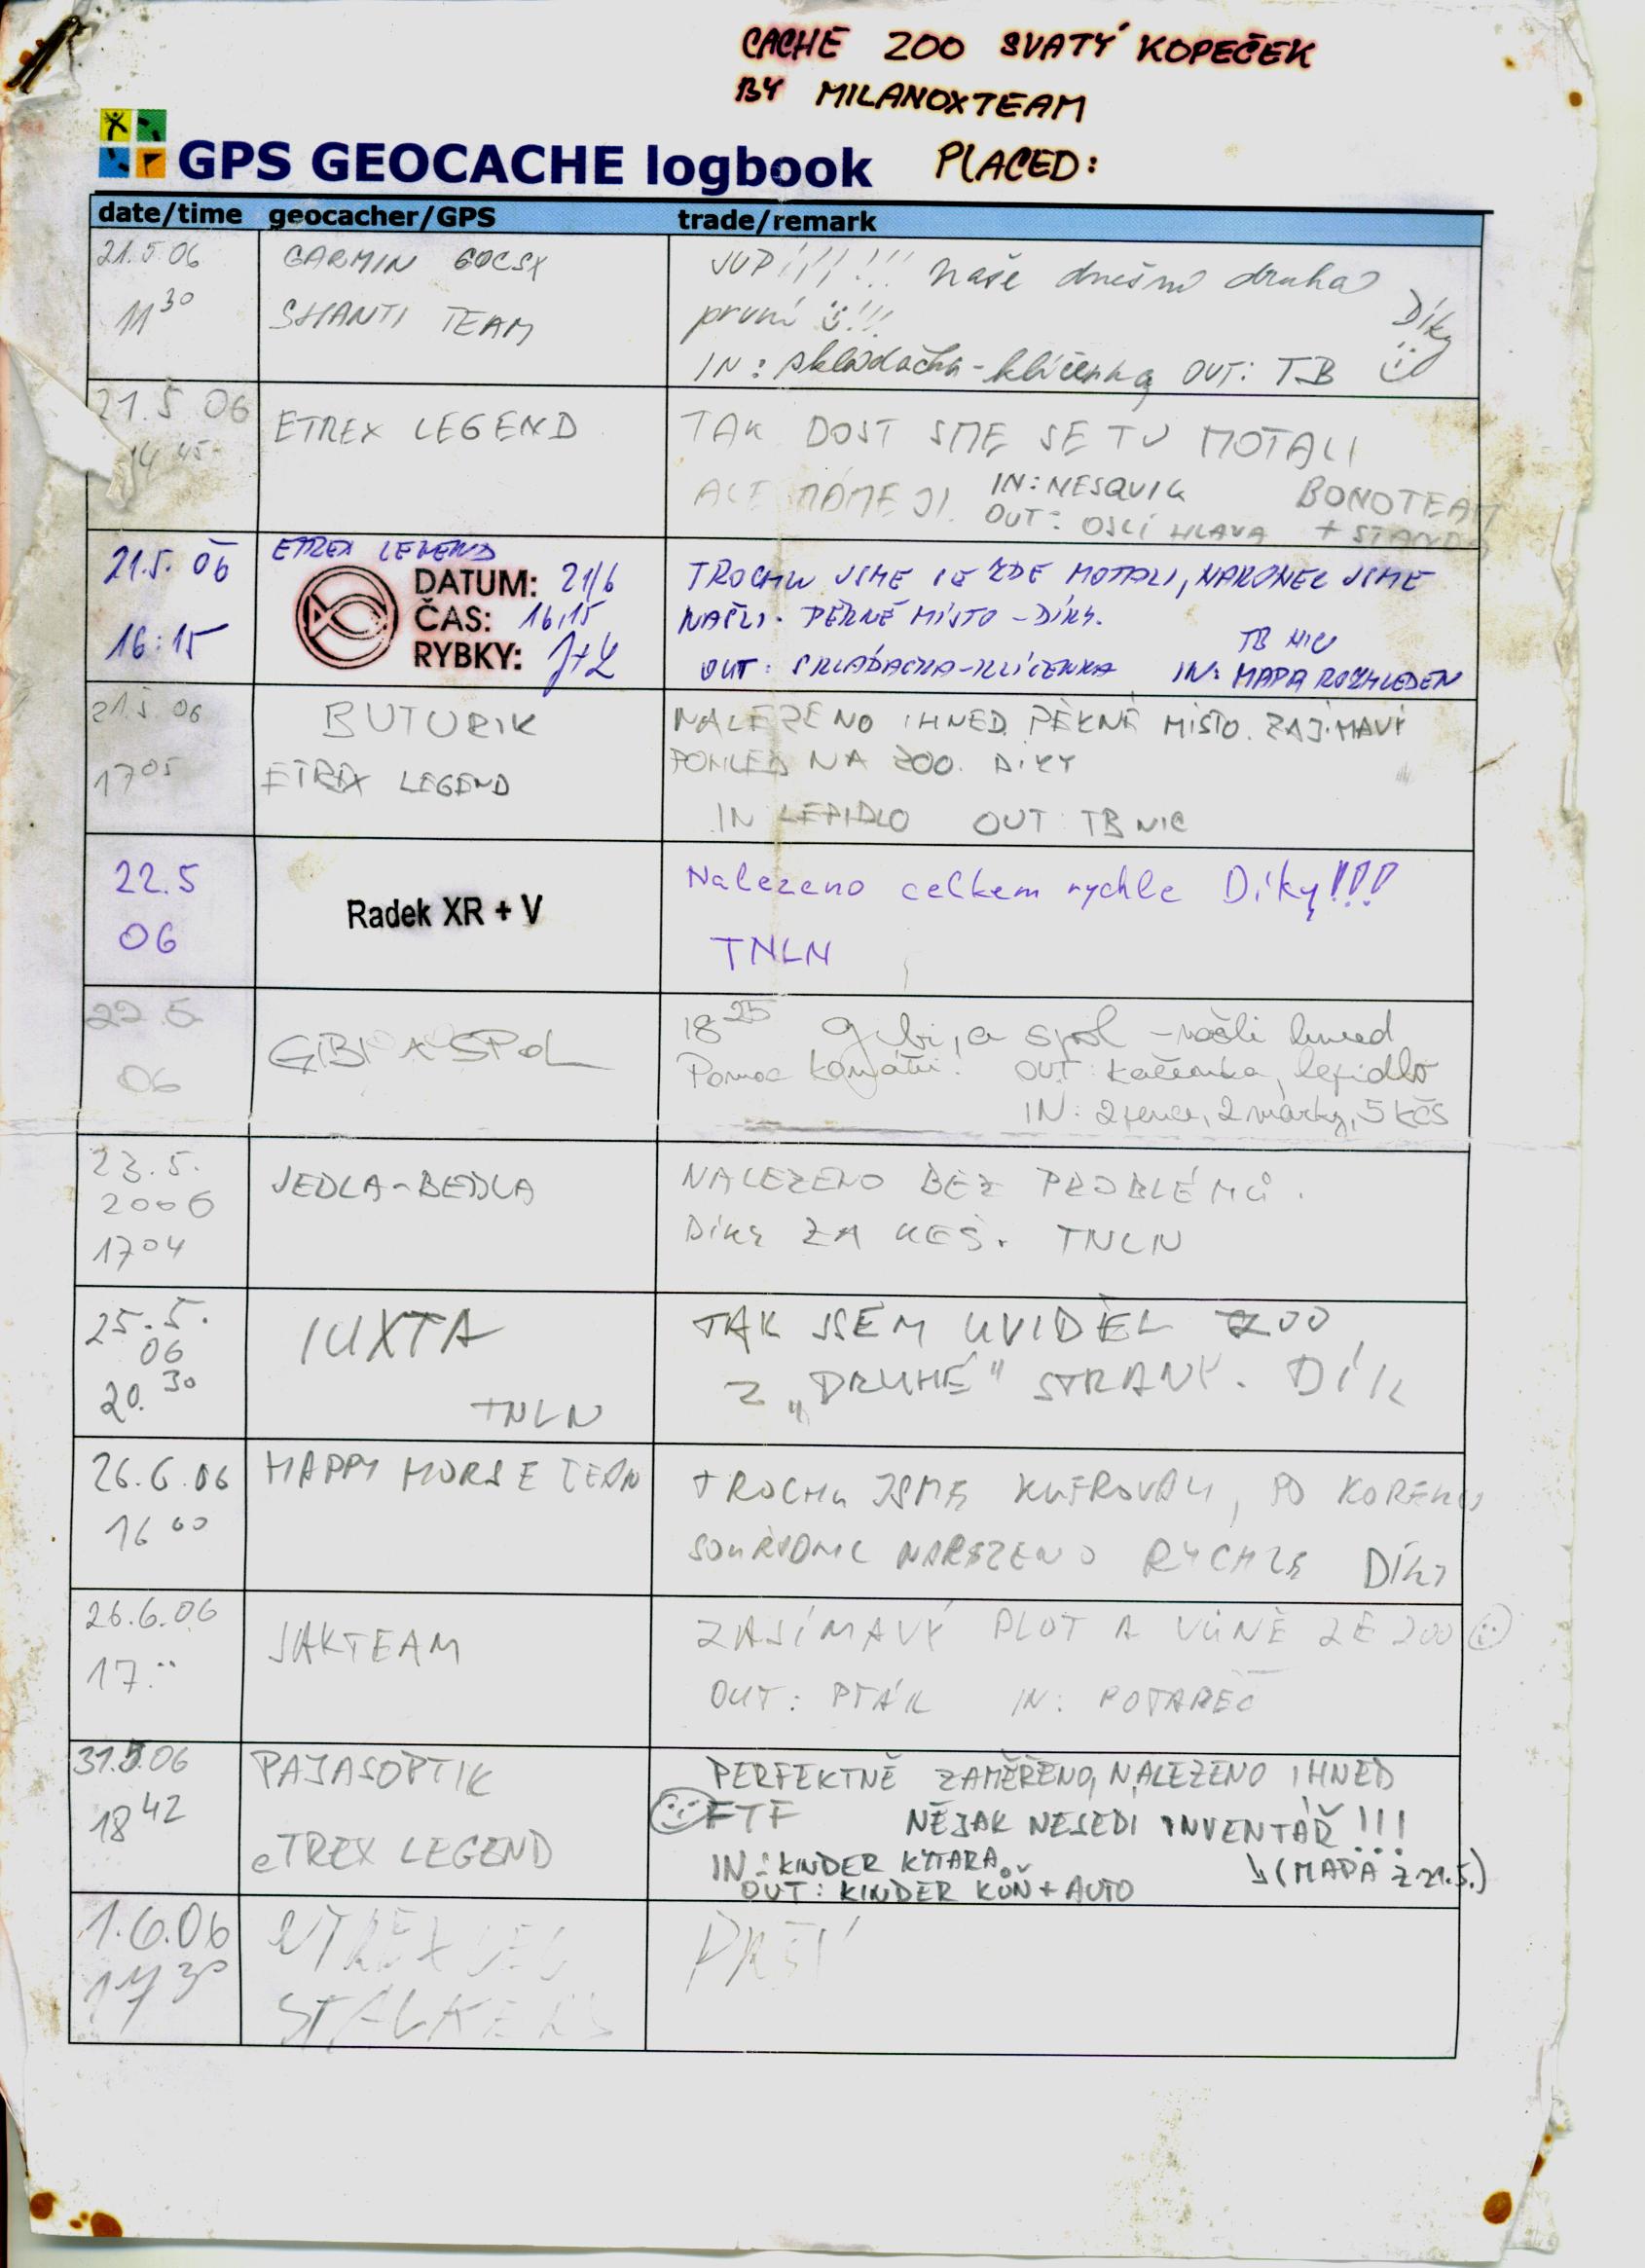 CACHE ZOO SVATÝ KOPEČEK
BY MILANOXTEAM
GPS GEOCACHE logbook PLACED:
date/time geocacher/GPS trade/remark
21.5.06 GARMIN 60CSX JUPÍ!!!!!! naše druhá
11 30 SHANTI TEAM první !!! Díky
IN: skládačka-klíčenka OUT: TB
21.5 06 ETREX LEGEND TAK DOST SME SE TU MOTALI
14 45 ALE MÁME JI. IN: NESQUIK BONOTEAM
OUT: OSLÍ HLAVA + STANDA
21.5. 06 ETREX LEGEND
DATUM: 21/6 TROCHU JSME SE ZDE MOTALI, NAKONEC JSME
16:15 ČAS: 16,15 NAŠLI. PĚKNÉ MÍSTO - DÍKY.
RYBKY: J+L TB NIC
OUT: SKLÁDAČKA-KLÍČENKA IN: MAPA ROZHLEDEN
21.5.06 BUTURIK NALEZENO IHNED. PĚKNÉ MÍSTO. ZAJÍMAVÝ
17 05 ETREX LEGEND POHLED NA ZOO. DÍKY
IN LEPIDLO OUT TB NIC
22.5 Nalezeno celkem rychle Díky!!!
06 Radek XR + V TNLN
22.5 GIBI A SPOL 18 25 Gibi, a spol - našli hned
06 Pomoc kamátů! OUT: kačenka, lepidlo
IN: 2 pence, 2 známky, 5 Kčs
23.5. JEDLA-BEDLA NALEZENO BEZ PROBLÉMŮ.
2006 Díky ZA KEŠ. TNLN
17 04
25.5. IUXTA TAK JSEM UVIDĚL ZOO
06 Z „DRUHÉ" STRANY. DÍK
20.30 TNLN
26.6.06 HAPPY HORSE TEAM TROCHU JSME KUFROVALI, PO
16 00 NALEZENO RYCHLE DÍKY
26.6.06 JAKTEAM ZAJÍMAVÝ PLOT A VŮNĚ ZE ZOO
17.. OUT: PTÁK IN: POTAPĚČ
31.5.06 PAJASOPTIK PERFEKTNĚ ZAMĚŘENO, NALEZENO IHNED
18 42 FTF NĚJAK NESEDI INVENTÁŘ!!!
eTREX LEGEND IN: KINDER KYTARA (MAPA Z 21.5.)
OUT: KINDER KŮŇ + AUTO
1.6.06 ETREX LEG PRŠÍ
17 30 STALKERS